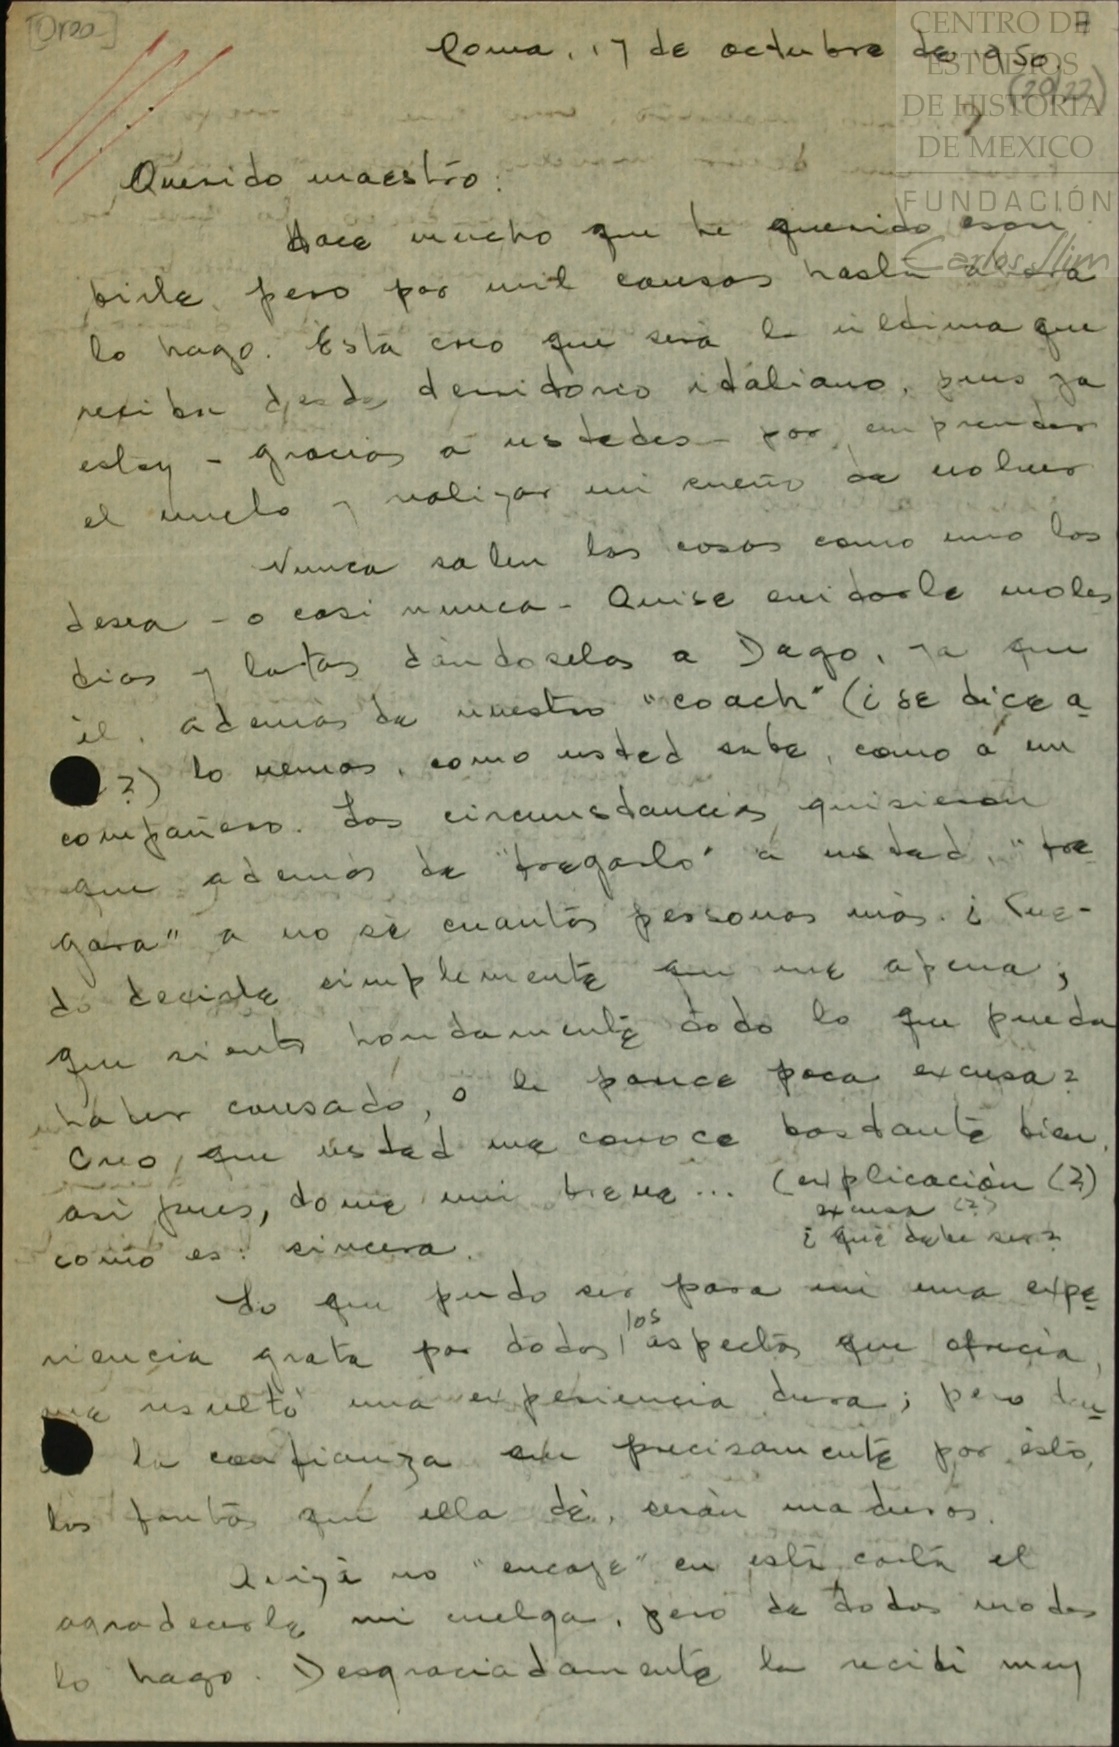 [Oroz]
CENTRO DE
ESTUDIOS
DE HISTORIA
DE MEXICO
FUNDACIÓN
Carlos Slim
Roma, 17 de octubre de 950.
(20/22)
Querido maestro:
Hace mucho que he querido escri
birle, pero por mil causas hasta ahora
lo hago. Esta creo que será la última que
reciba desde territorio italiano, pues ya
estoy - gracias a ustedes - por emprender
el vuelo y realizar mi sueño de volver
Nunca salen las cosas como uno las
desea - o casi nunca - Quise evitarle moles
tias y latas dándoselas a Dago, ya que
él, además de nuestro "coach" (¿se dice a
?) lo vemos, como usted sabe, como a un
compañero. Las circunstancias quisieron
que además de "fregarlo" a usted, "fre
gara" a no sé cuantas personas más. ¿Pue-
do decirle simplemente que me apena,
que siento hondamente todo lo que pueda
haber causado, o le parece poca excusa?
Creo que usted me conoce bastante bien,
así pues, tome mi breve... (explicación (?)
excusa (?)
¿qué debe ser?
como es: sincera.
Lo que pudo ser para mi una expe
riencia grata por todos los aspectos que ofrecía,
me resultó una experiencia dura; pero ten
la confianza que precisamente por ésto,
los frutos que ella dé, serán maduros.
Quizá no "encaje" en esta carta el
agradecerle mi , pero de todos modos
lo hago. Desgraciadamente la recibí muy